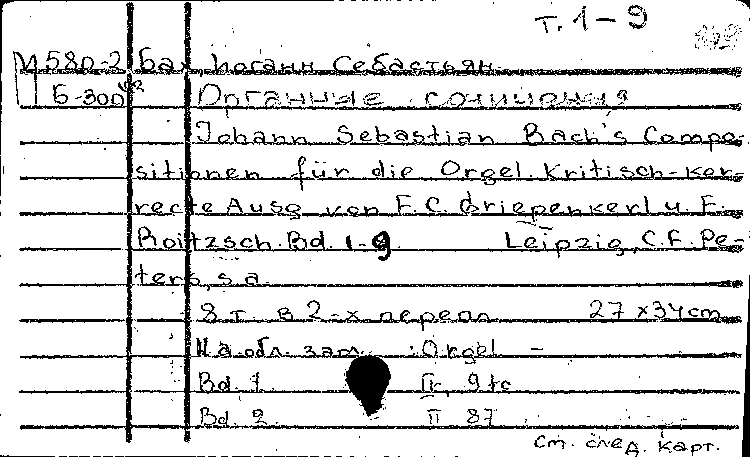 т. 1-9
М 580-2 Бах, Иоганн Себастьян.
Б-300
Органные сочинения
Johann Sebastian Bach's Compo-
sitionen für die Orgel. Kritisch-kor-
recte Ausg. von F.C. Griepenkerl u. F.
Roitzsch. Bd. 1-9. Leipzig, C.F. Pe-
ters, s.a.
8 т. в 2-х перепл 27 x 34 cm.
На обл. загл. : Orgel -
Bd. 1
Bd. 2 II 87
См. след. карт.